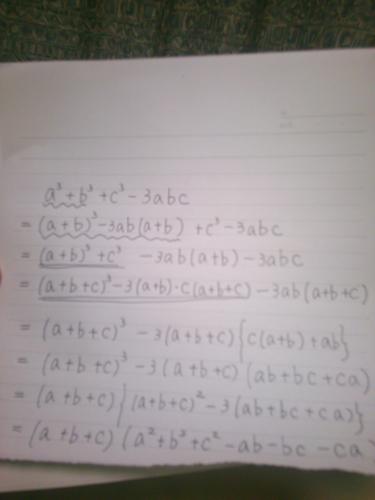 a³+b³+c³-3abc
=(a+b)³-3ab(a+b)+c³-3abc
=(a+b)³+c³-3ab(a+b)-3abc
=(a+b+c)³-3(a+b)·c(a+b+c)-3ab(a+b+c)
=(a+b+c)³-3(a+b+c){c(a+b)+ab}
=(a+b+c)³-3(a+b+c)(ab+bc+ca)
=(a+b+c){(a+b+c)²-3(ab+bc+ca)}
=(a+b+c)(a²+b²+c²-ab-bc-ca